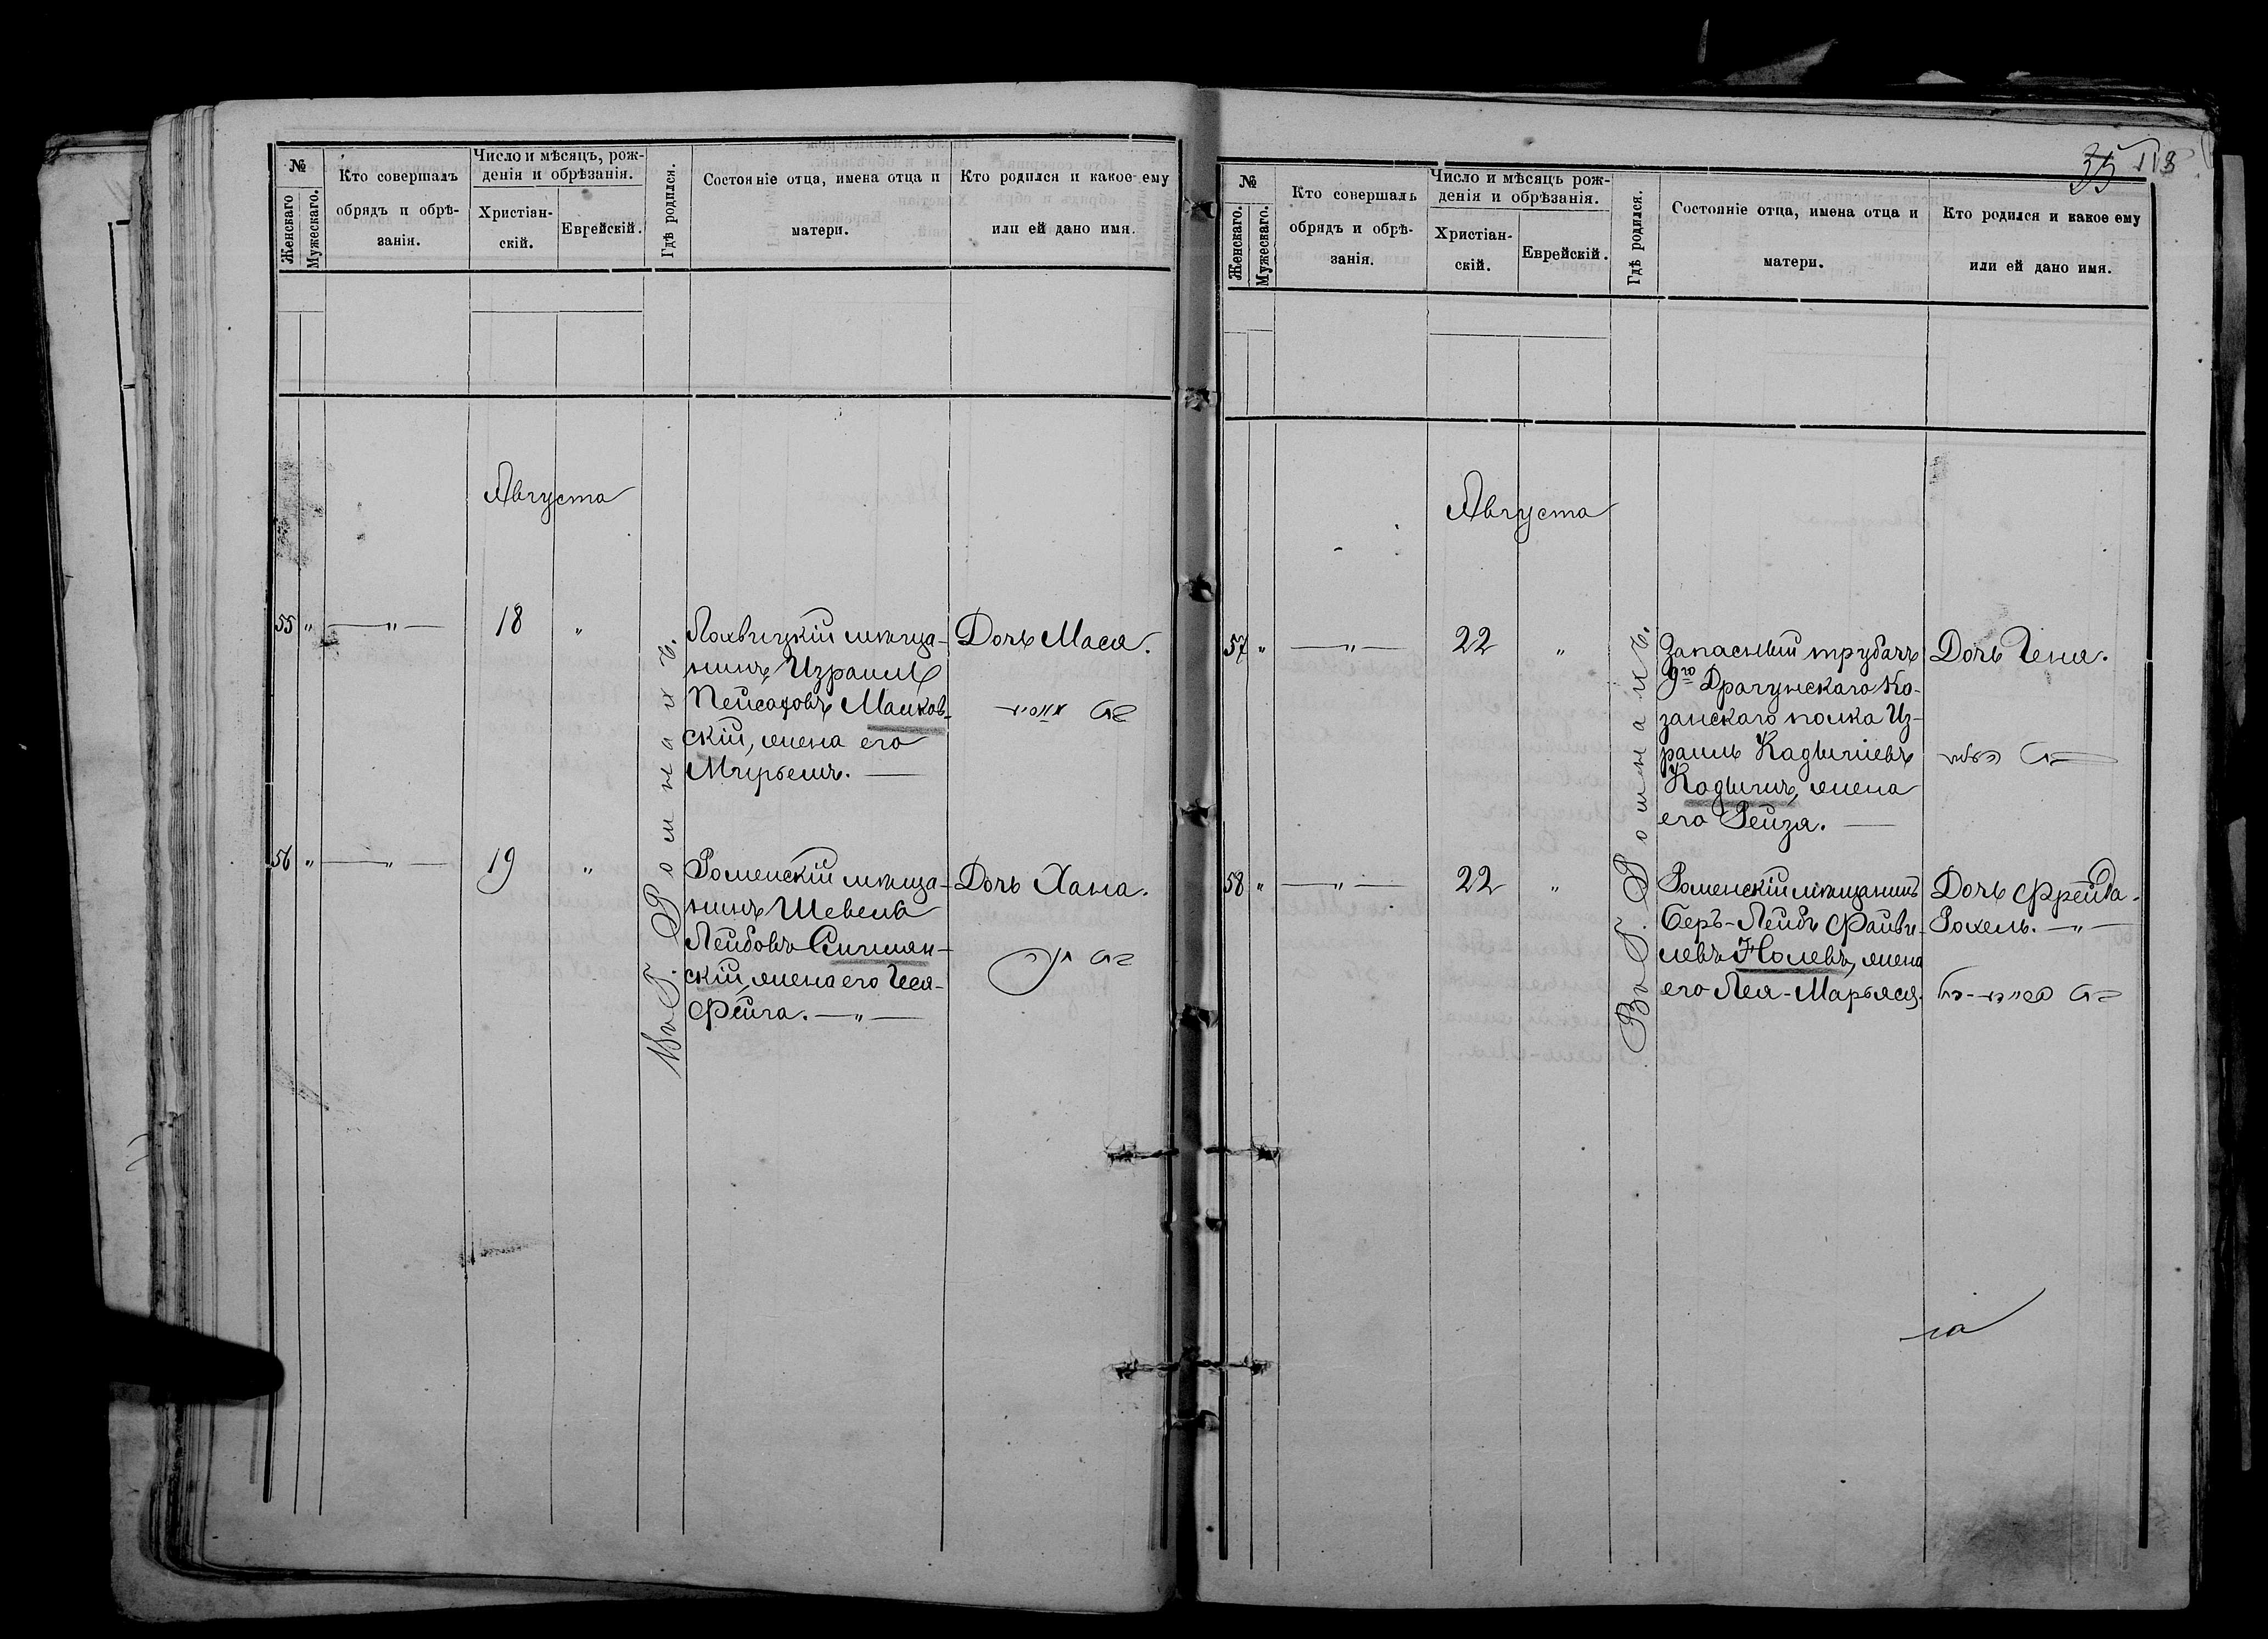 №
Женскаго
Мужескаго.
Кто совершалъ
обрядъ и обрѣ-
занія.
Число и мѣсяцъ, рож-
денія и обрѣзанія.
Христіан-
скій.
Еврейскій.
Гдѣ родился.
Состояніе отца, имена отца и
матери.
Кто родился и какое ему
или ей дано имя.
Августа
Въ Г. Ромнахъ.
55 " — " — 18 "
Лохвицкій мѣща-
нинъ Израиль
Пейсаховъ Маиков-
скій, жена его
Мирьемъ. —
Дочь Мася.
56 " — " — 19 "
Роменскій мѣща-
нинъ Шевель
Лейбовъ
скій, жена его Геся-
Фейга. — " —
Дочь Хана.
35
№
Женскаго.
Мужескаго.
Кто совершалъ
обрядъ и обрѣ-
занія.
Число и мѣсяцъ рож-
денія и обрѣзанія.
Христіан-
скій.
Еврейскій.
Гдѣ родился.
Состояніе отца, имена отца и
матери.
Кто родился и какое ему
или ей дано имя.
Августа
Въ Г. Ромнахъ.
57 " — " — 22 "
Запасный трубачъ
9го Драгунскаго Ка-
занскаго полка Из-
раиль Кадишевъ
Кадишъ, жена
его Рейза. —
Дочь Геня.
58 " — " — 22 "
Роменскій мѣщанинъ
Беръ-Лейбъ Файви-
левъ Нолевъ, жена
его Лея-Марьяся.
Дочь Фрейда-
Рохель. — " —